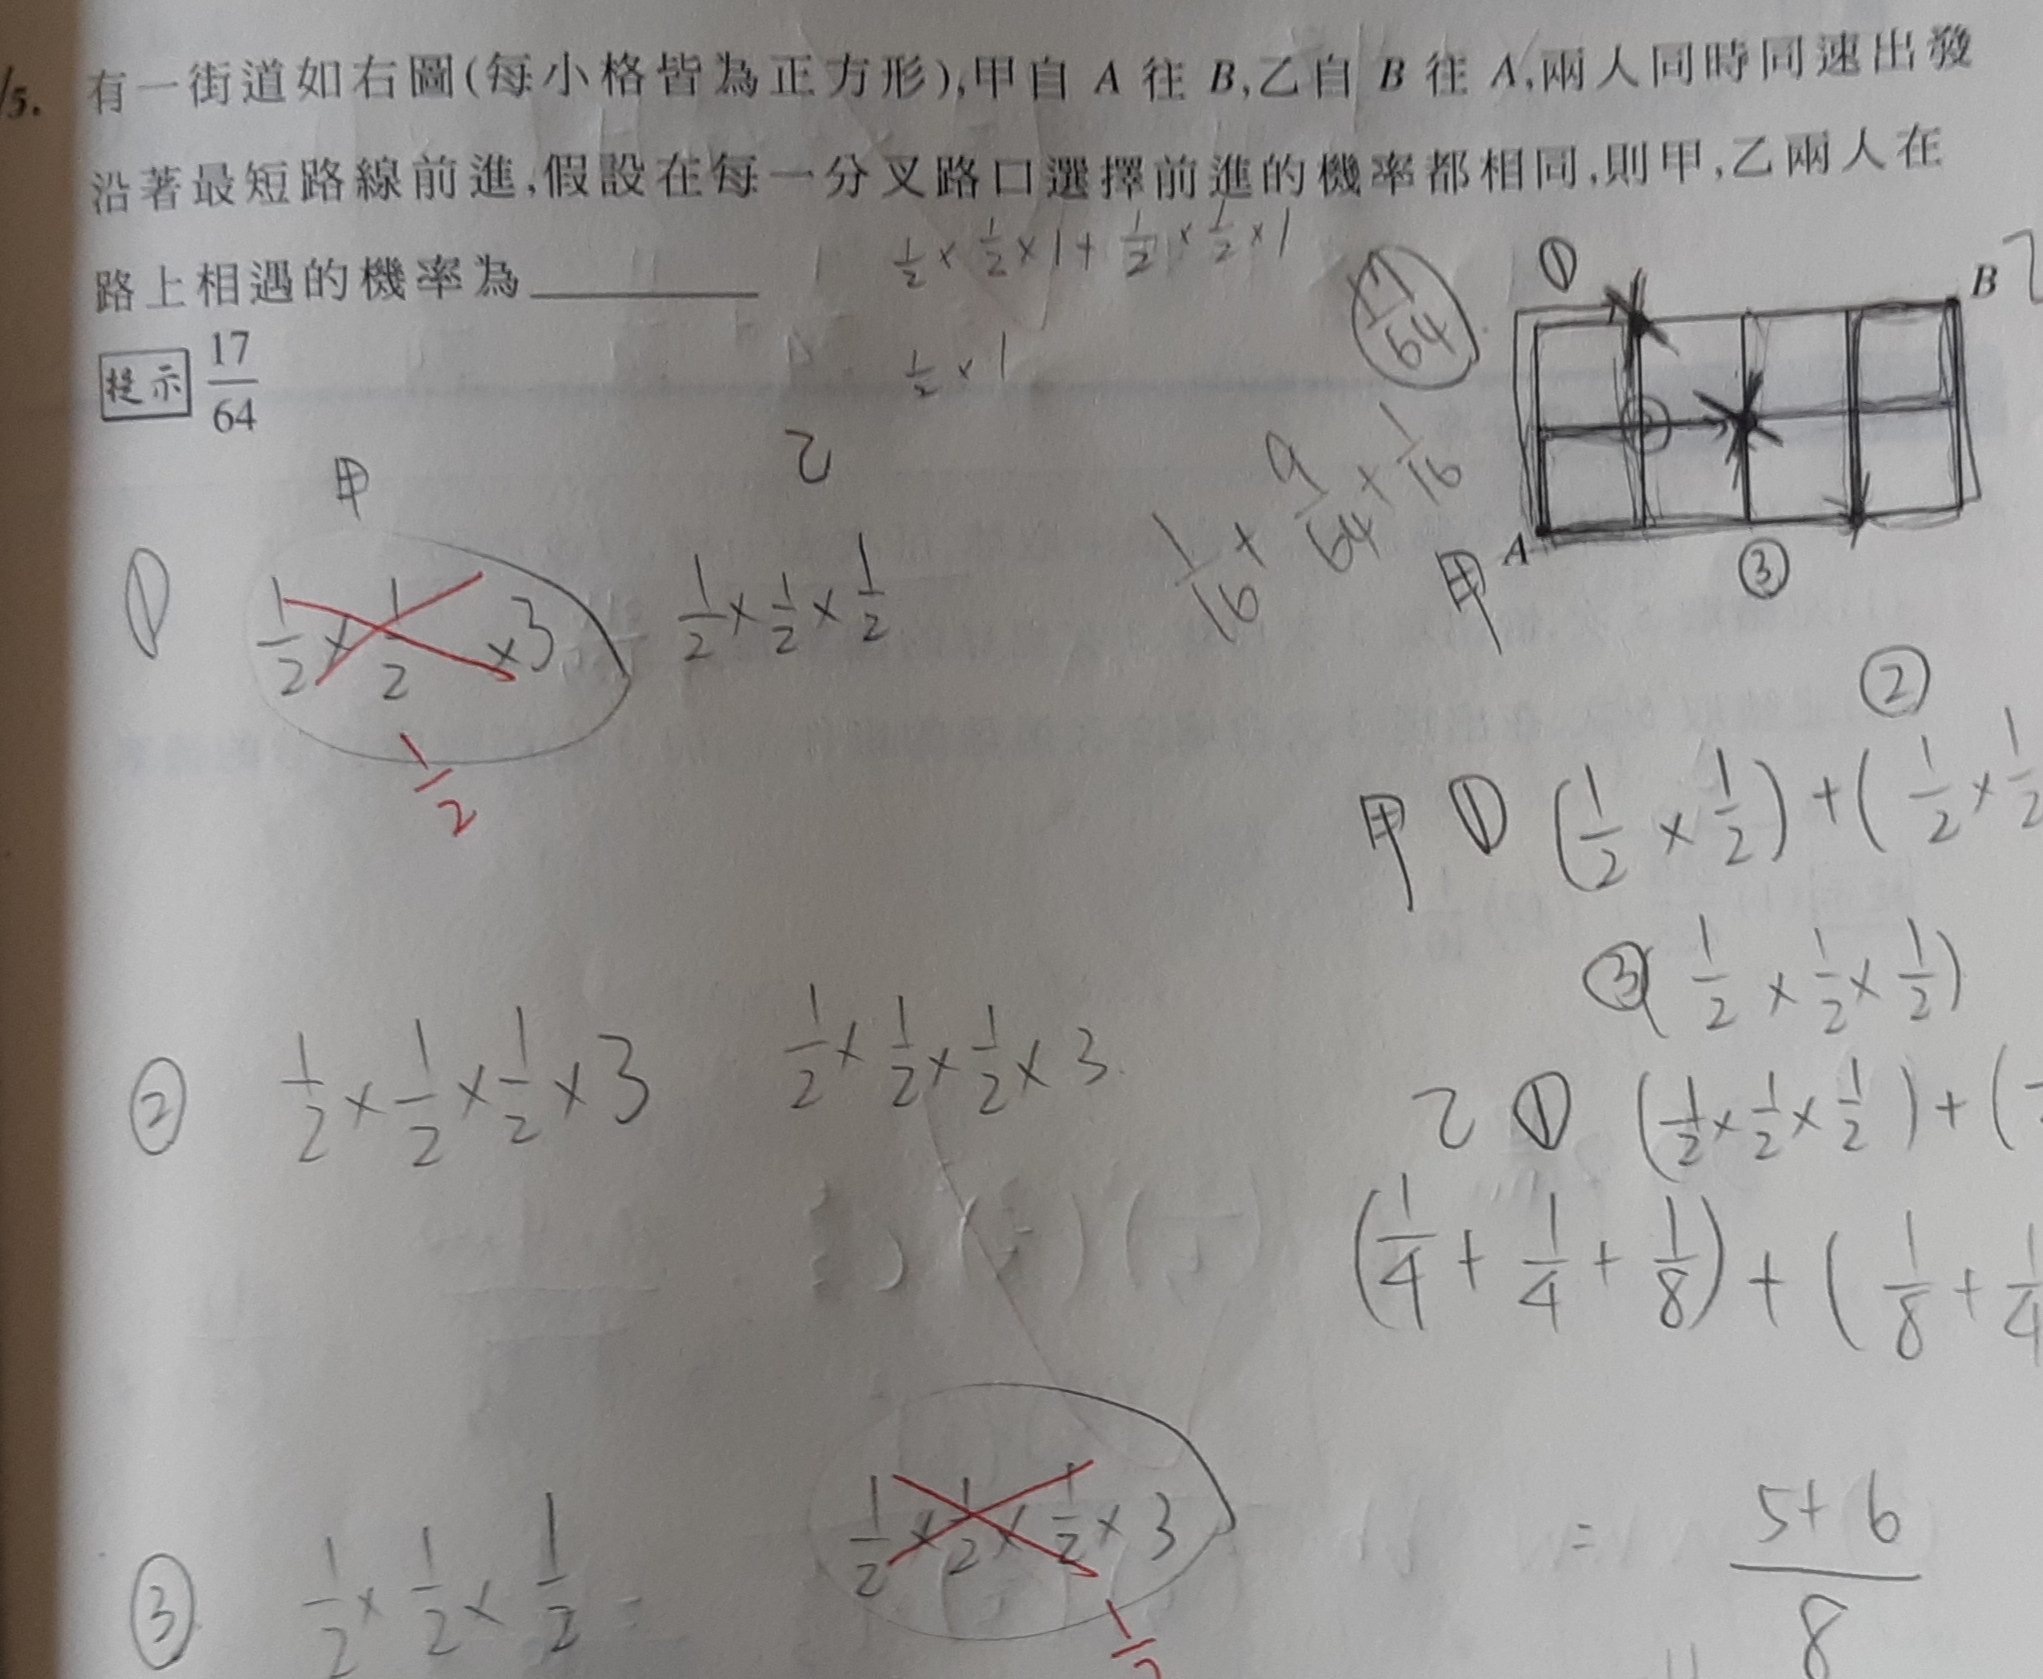 5. 有一街道如右圖(每小格皆為正方形),甲自 A 往 B,乙自 B 往 A,兩人同時同速出發
沿著最短路線前進,假設在每一分叉路口選擇前進的機率都相同,則甲,乙兩人在
路上相遇的機率為
1/2 × 1/2 × 1 + 1/2 × 1/2 × 1
1/2 × 1
17/64
① B 乙
提示 17/64
1/16 + 9/64 + 1/16
甲 A ③
甲 乙
① 1/2 × 1/2 × 3 1/2 × 1/2 × 1/2
1/2
②
甲 ① (1/2 × 1/2) + (1/2 × 1/2
③ (1/2 × 1/2 × 1/2)
② 1/2 × 1/2 × 1/2 × 3 1/2 × 1/2 × 1/2 × 3
乙 ① (1/2 × 1/2 × 1/2) + (
(1/4 + 1/4 + 1/8) + (1/8 + 1/4
③ 1/2 × 1/2 × 1/2 = 1/2 × 1/2 × 1/2 × 3
1/2
= 5+6/8